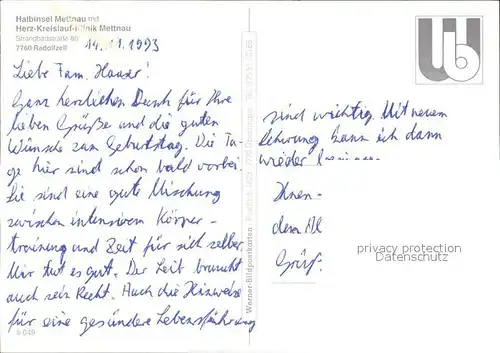 Halbinsel Mettnau mit
Herz-Kreislauf-Klinik Mettnau
Strandbadstraße 80
7760 Radolfzell
14.11.1993
Liebe Fam. Hauser!
Ganz herzlichen Dank für Ihre
lieben Grüße und die guten
Wünsche zum Geburtstag. Die Ta-
ge hier sind schon bald vorbei.
Sie sind eine gute Mischung
zwischen intensivem Körper-
training und Zeit für sich selber.
Mir tut es gut. Der Leib braucht
auch sein Recht. Auch die Hinweise
für eine gesündere Lebensführung
6 049
Werner-Bildpostkarten
Ub
sind wichtig. Mit neuem
Schwung kann ich dann
wieder
Ihnen
dem
Grüß.
privacy protection
Datenschutz